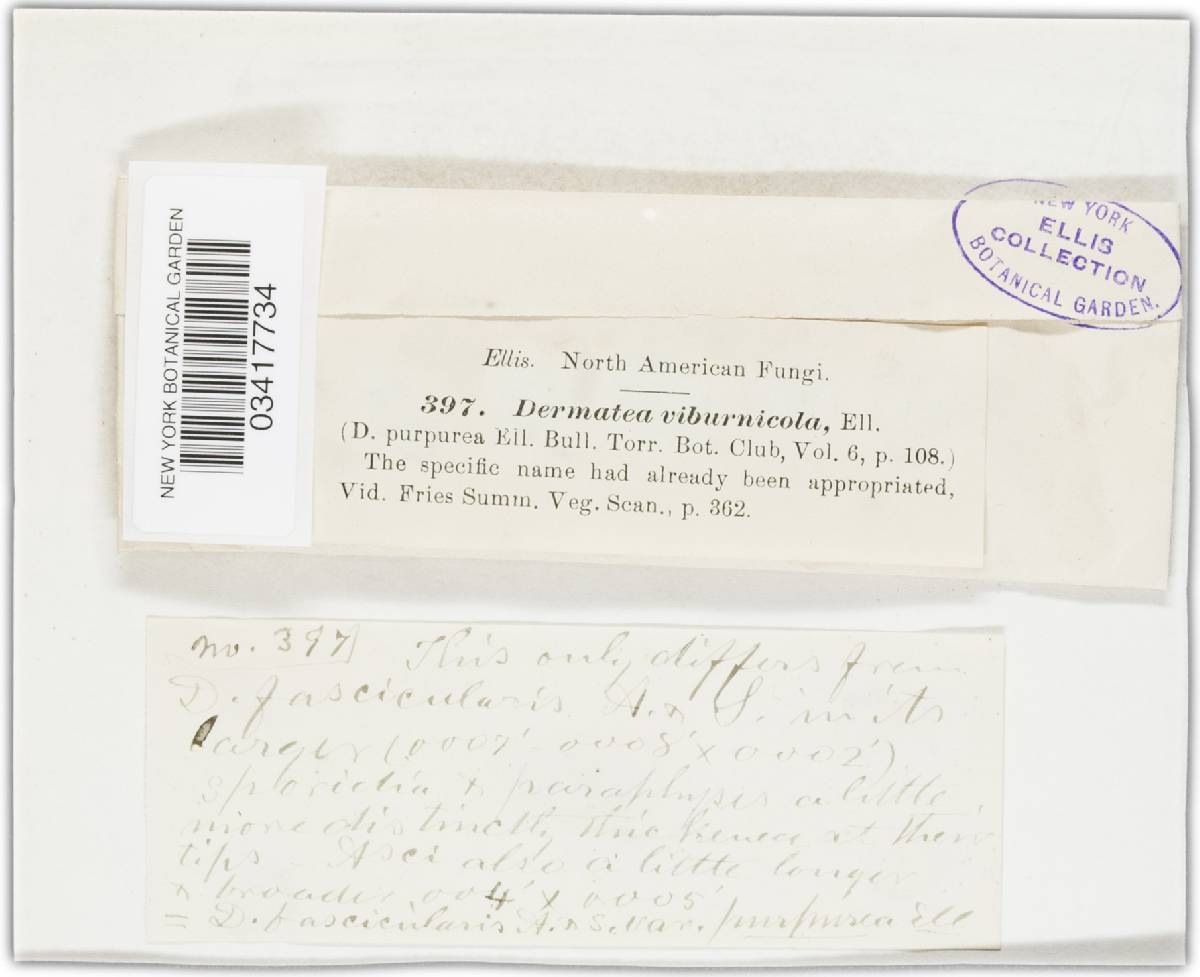 NEW YORK BOTANICAL GARDEN
03417734
NEW YORK
ELLIS
COLLECTION
BOTANICAL GARDEN.
Ellis. North American Fungi.
397. Dermatea viburnicola, Ell.
(D. purpurea Ell. Bull. Torr. Bot. Club, Vol. 6, p. 108.)
The specific name had already been appropriated,
Vid. Fries Summ. Veg. Scan., p. 362.
No. 397] This only differs from
D. fascicularis A. & S. in its
larger (0007'-0008' x 0002')
sporidia & paraphyses a little
more distinctly thickened at their
tips - Asci also a little longer
& broader 004' x 0005'
= D. fascicularis A. & S. var. purpurea Ell